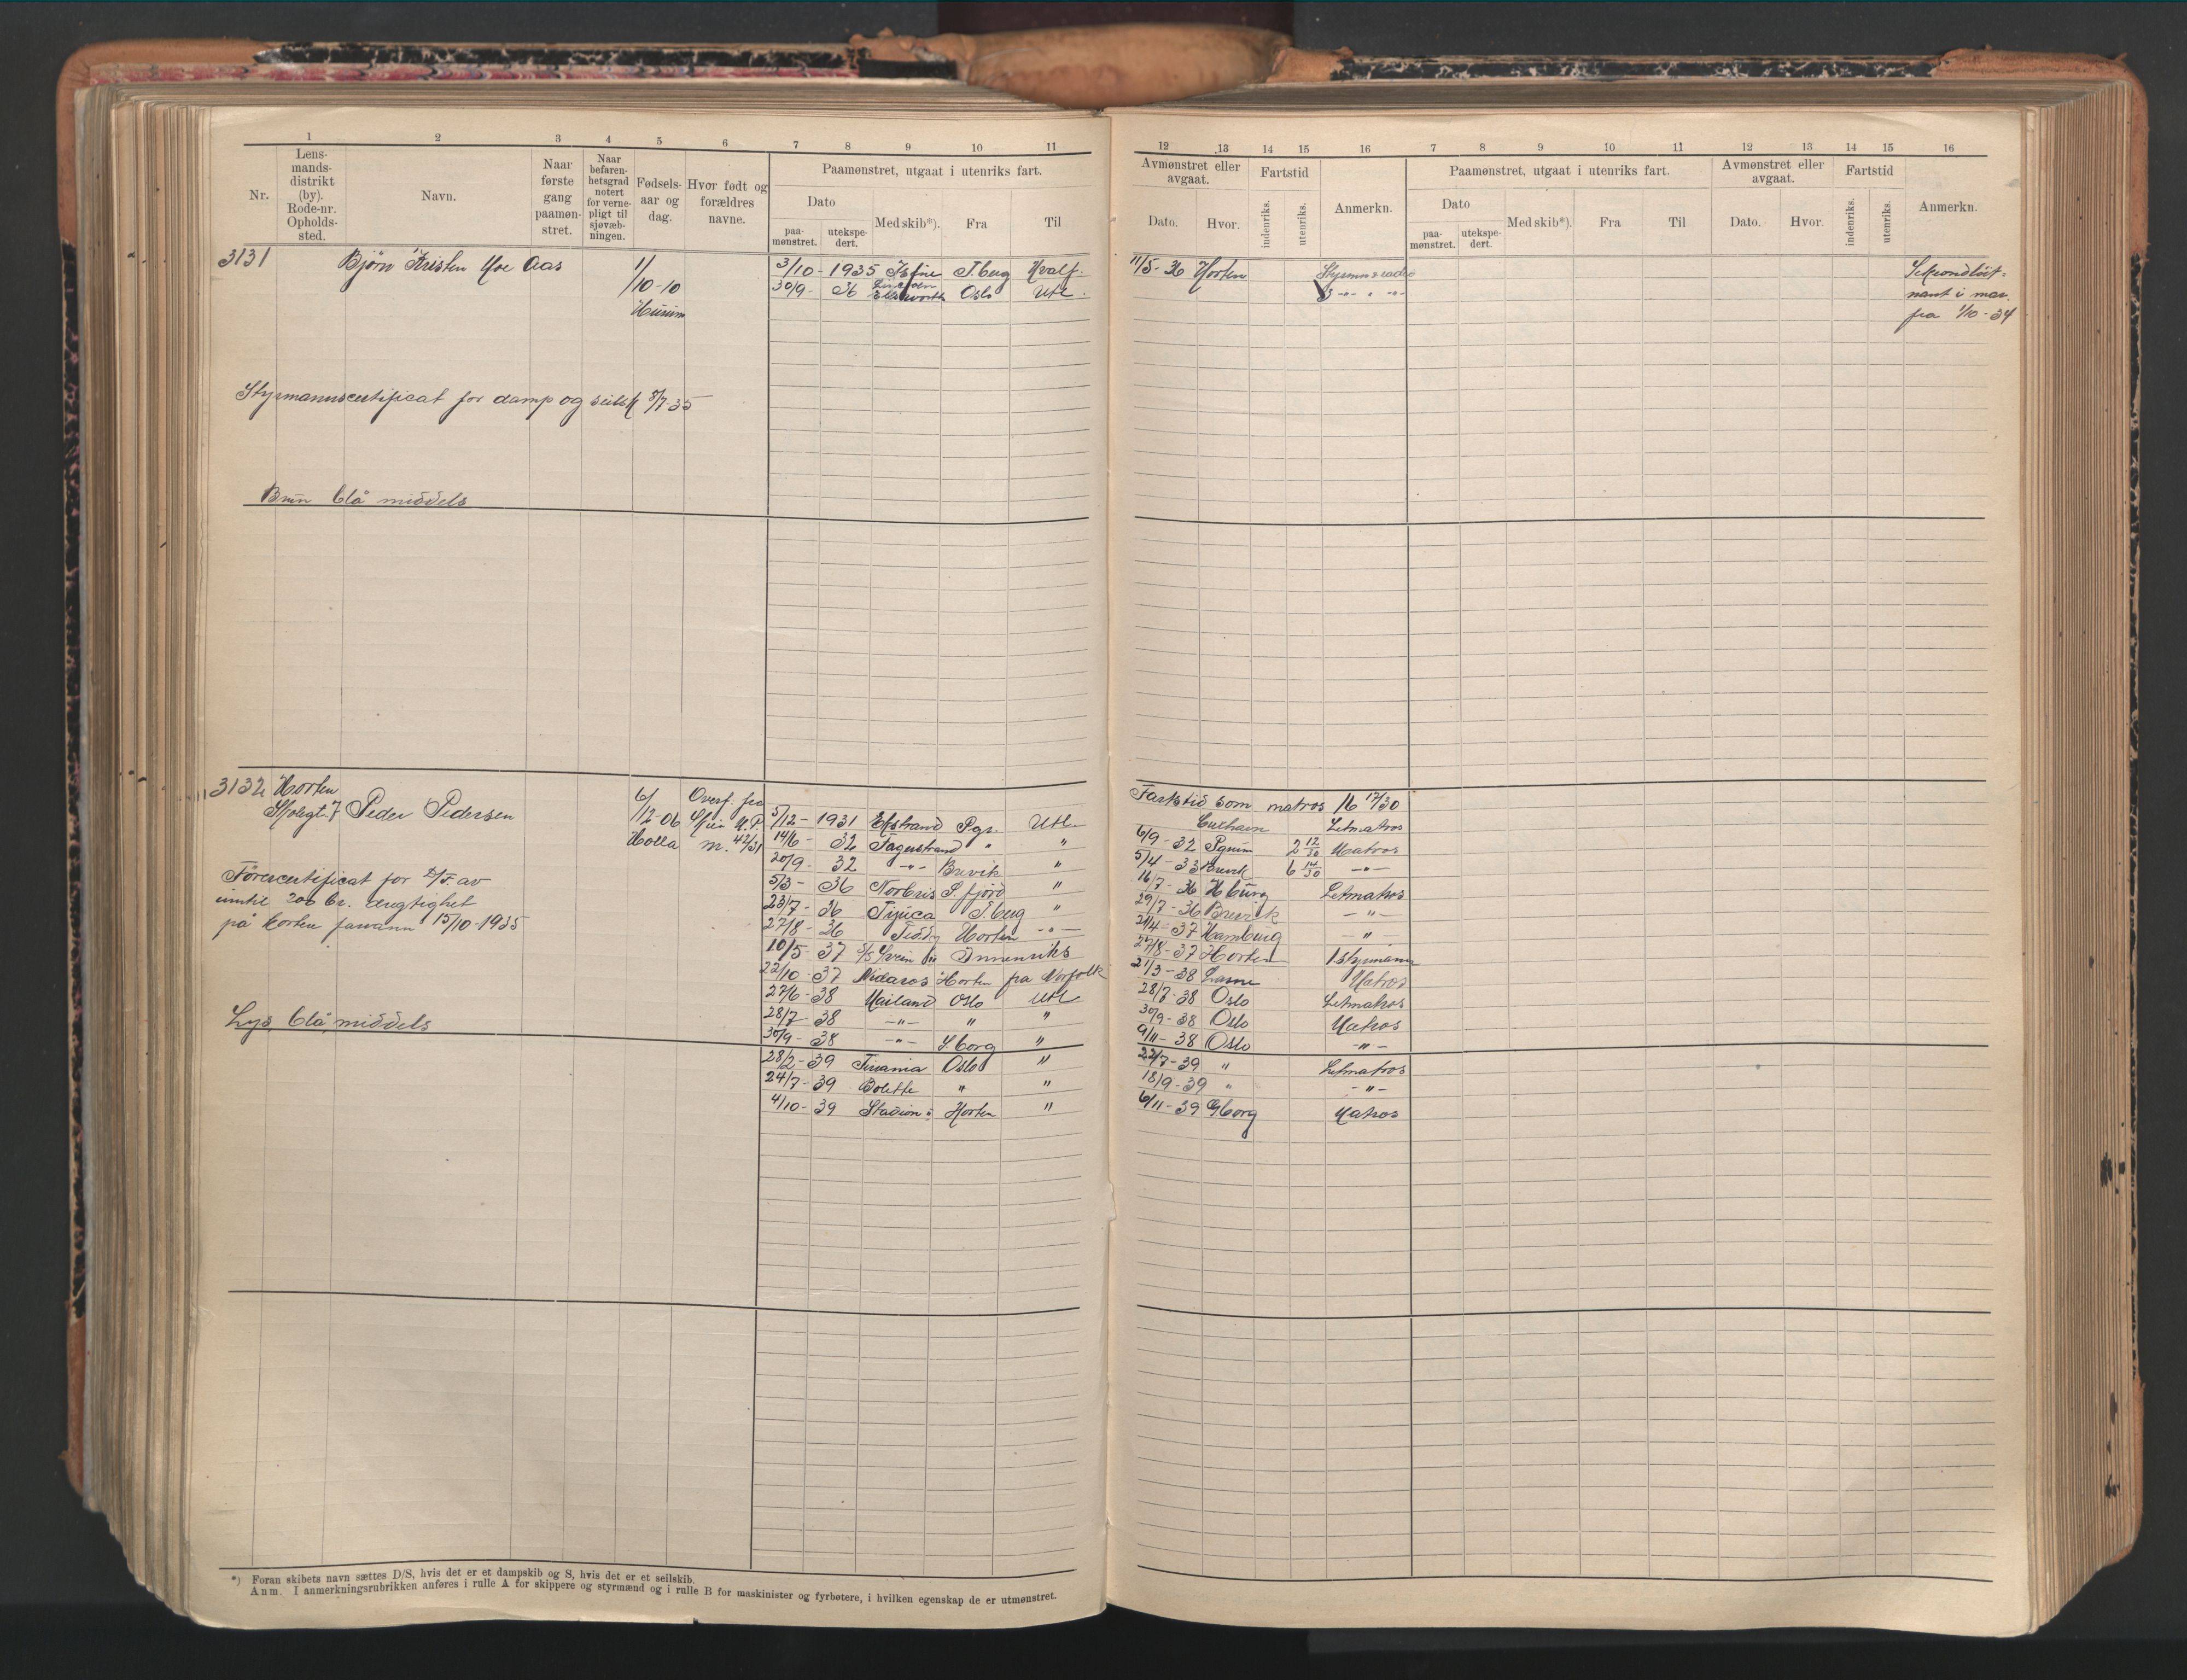 1 2 3 4 5 6 7 8 9 10 11
Nr.
Lens-
mands-
distrikt
(by).
Rode-nr.
Opholds-
sted.
Navn.
Naar
første
gang
paamøn-
stret.
Naar
befaren-
hetsgrad
notert
for verne-
pligt til
sjøvæb-
ningen.
Fødsels-
aar og
dag.
Hvor født og
forældres
navne.
Paamønstret, utgaat i utenriks fart.
Dato
paa-
mønstret.
utekspe-
dert.
Med skib*).
Fra
Til
3131 Bjørn Kristen Moe Aas 1/ 3/10 - 1935 T.berg Hvalf.
/10-10 30/9 - 36 Ellsworth Oslo Utl.
Hurum
Styrmannscertificat for damp og seilsk 8/7-35
Brun blå middels
3132 Horten
Skolegt. 7 Peder Pedersen 6/ Overf. fra
/12-06 3/12 - 1931 Ekstrand Pgr. Utl.
Holla m. 42/31 14/6 - 32 Fagerstrand " "
20/9 - 32 -"- Brevik "
5/3 - 36 Norbris S.fjord "
Førercertificat for av
inntil 200 br. dregtighet
på Horten farvann 15/10-1935
23/7 - 36 Tijuca T.berg "
27/8 - 36 Teddy Horten -"-
10/5 - 37 Innenriks
22/10 - 37 Nidaros Horten fra Norfolk
27/6 - 38 Mailand Oslo Utl
28/7 - 38 -"- " "
Lys blå middels
30/9 - 38 -"- S.borg "
28/2 - 39 Titania Oslo "
24/7 - 39 Bolette " "
4/10 - 39 Stadion Horten "
*) Foran skibets navn sættes D/S, hvis det er et dampskib og S, hvis det er et seilskib.
Anm. I anmerkningsrubrikken anføres i rulle A for skippere og styrmænd og i rulle B for maskinister og fyrbøtere, i hvilken egenskap de er utmønstret.
12 13 14 15 16 7 8 9 10 11 12 13 14 15 16
Avmønstret eller
avgaat.
Dato.
Hvor.
Fartstid
indenriks.
utenriks.
Anmerkn.
Paamønstret, utgaat i utenriks fart.
Dato
paa-
mønstret.
utekspe-
dert.
Med skib*).
Fra
Til
Avmønstret eller
avgaat.
Dato.
Hvor.
Fartstid
indenriks.
utenriks.
Anmerkn.
11/5 - 36 Horten Sekondløit-
nant i mar.
fra 1/10-34
Fartstid som matros 16 17/30
Letmatros
6/9 - 32 2 12/30 Matros
5/4 - 33 Brevik 6 14/30 -"-
16/7 - 36 H.burg Letmatros
29/7 - 36 Brevik -"-
21/4 - 37 Hamburg -"-
27/8 - 37 Horten 1. styrmann
21/3 - 38 Matros
28/7 - 38 Oslo Letmatros
30/9 - 38 Oslo Matros
9/11 - 38 Oslo -"-
22/7 - 39 " Letmatros
18/9 - 39 " -"-
6/11 - 39 Gborg Matros